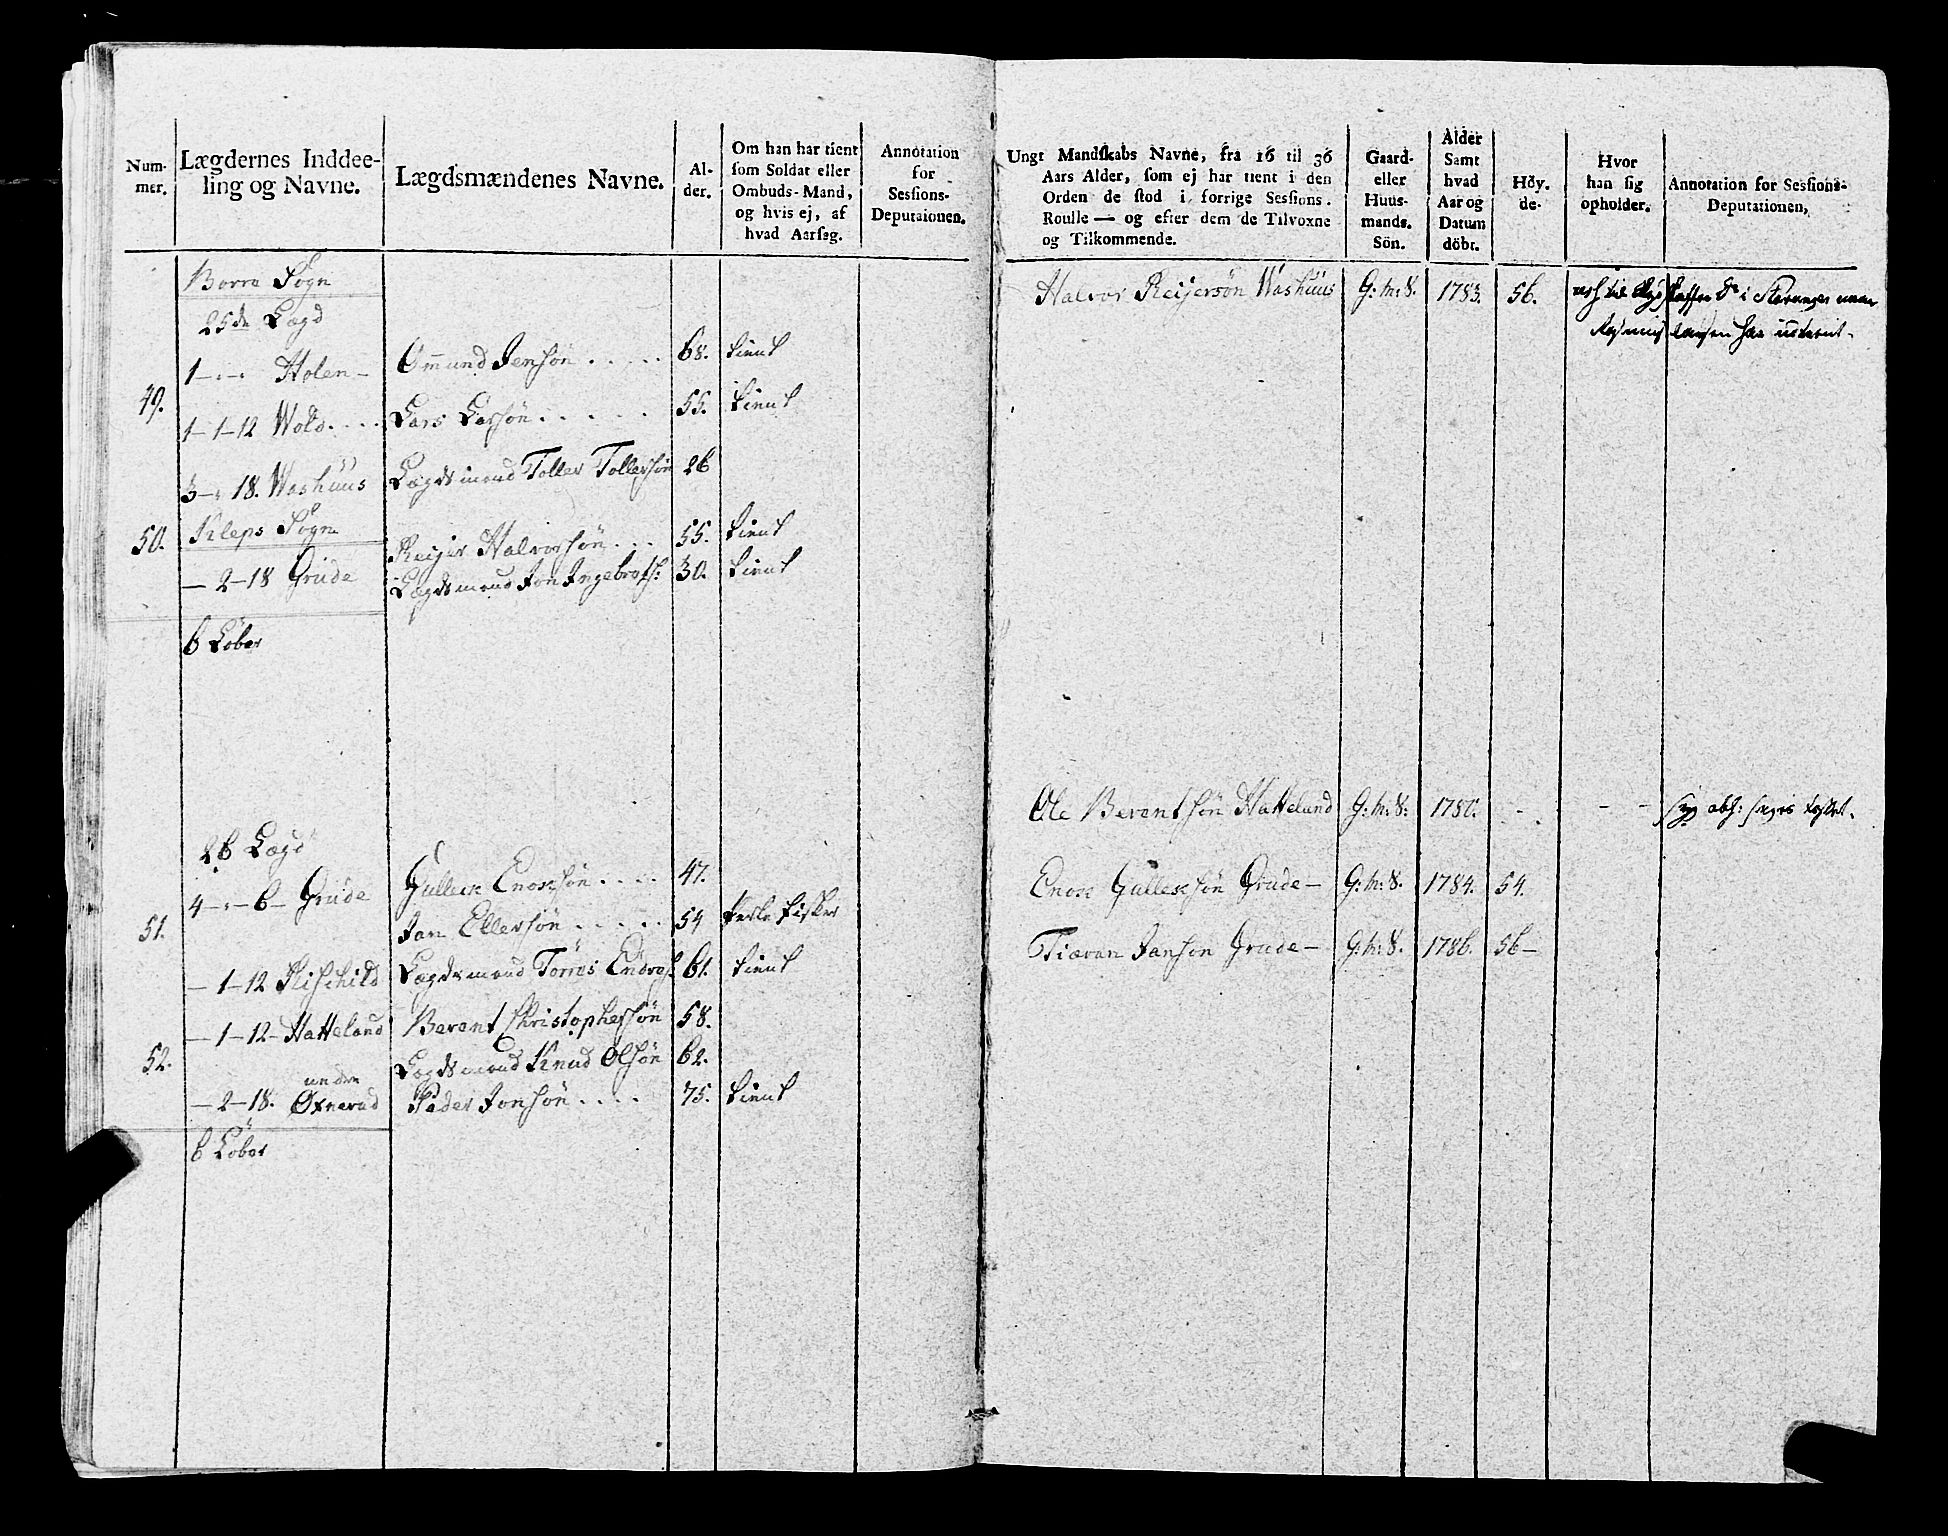 Num-
mer.
Lægdernes Inddee-
ling og Navne.
Lægdsmændenes Navne.
Al-
der.
Om han har tient
som Soldat eller
Ombuds-Mand,
og hvis ej, af
hvad Aarsag.
Annotation
for
Sessions-
Deputationen.
Borre Sogn
25de Lægd
1 - " - Holen - Ommund Jensøn . . . . 68. tient
49.
1 - 1 - 12 Wold . . . . Lars Larsøn . . . . . 55. tient
3 - " 18. Washuus Lægdsmand Toller Tollersøn 26
50. Kleps Sogn
Reijer Halvorsøn . . . 55. tient
- 2 - 18 Grude Lægdsmand Jon Ingebretss: 30. tient
6 Løber
26 Lægd
4 - " - 6 - Grude Gullech Enochsøn . . . . 47.
51. Jan Ellersøn . . . . . 54
- 1 - 12 Lægdsmand Torres 61. tient
- 1 - 12 - Hatteland Berent Christophersøn 58.
52. Lægdsmand Knud Olsøn 62.
nedre
- 2 - 18. Øxnevad Peder Jonsøn . . . . 75. tient
6 Løber
Ungt Mandskabs Navne, fra 16 til 36
Aars Alder, som ej har tient i den
Orden de stod i forrige Sessions-
Roulle — og efter dem de Tilvoxne
og Tilkommende.
Gaard-
eller
Huus-
mands-
Sön.
Alder
Samt
hvad
Aar og
Datum
döbt.
Höy-
de.
Hvor
han sig
opholder.
Annotation for Sessions-
Deputationen.
Halvor Reijersøn Washuus G: m: S. 1783. 56.
Ole Berentsøn Hatteland G: m: S: 1780. - . - -
Enoch Gullechsøn Grude - G: m: S. 1784. 54.
Tiøran Jansøn Grude - G: m: S. 1786. 56 -